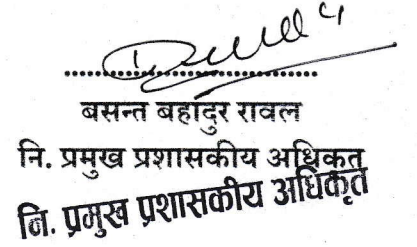 ....................................
बसन्त बहादुर रावल
नि. प्रमुख प्रशासकीय अधिकृत
नि. प्रमुख प्रशासकीय अधिकृत